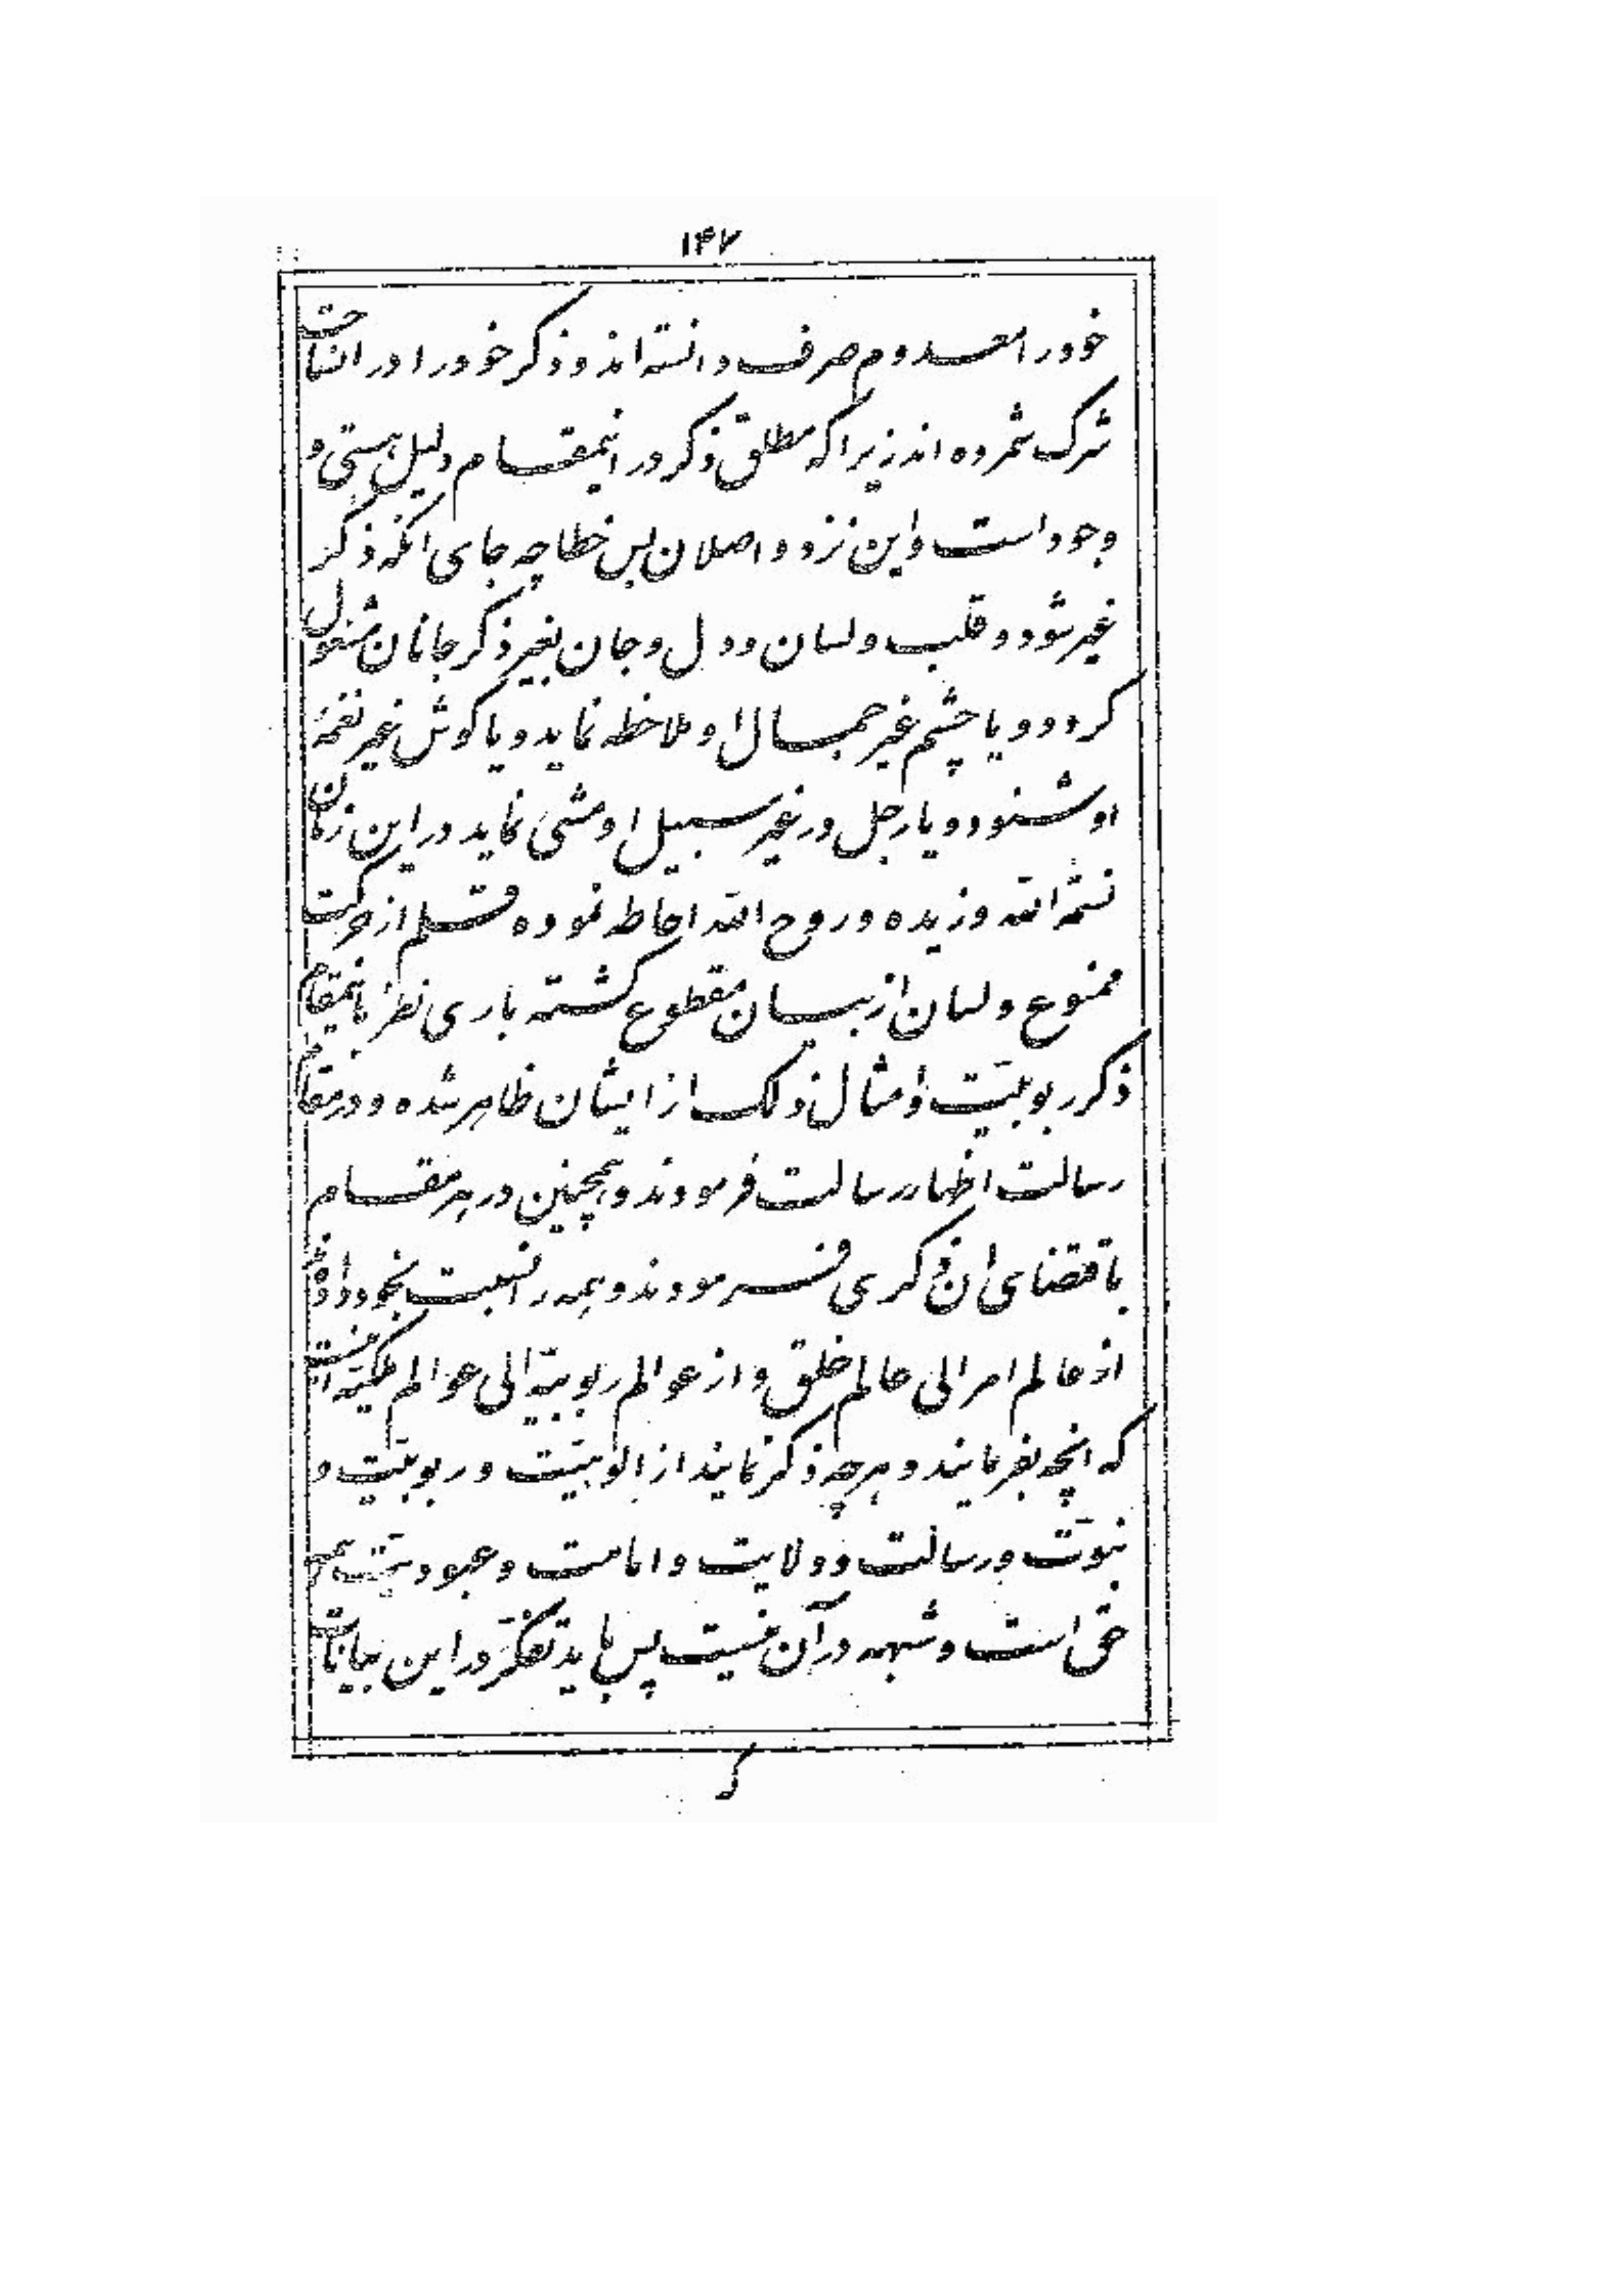 ۱۴۷
خود را معدوم صرف دانسته‌اند و ذکر خود را در انساحت
شرک شمرده‌اند زیرا که مطلق ذکر در اینمقام دلیل هستی و
وجود است و این نزد واصلان بس خطا چه جای انکه ذکر
غیر شود و قلب و لسان و دل و جان بغیر ذکر جانان مشغول
کردد و یا چشم غیر جمال او ملاحظه نماید و یا کوش غیر نغمهٔ
او شنود و یا رجل در غیر سبیل او مشی نماید در این زمان
نسمة الله وزیده و روح الله احاطه نموده قلم از حرکت
ممنوع و لسان از بیان مقطوع کشته باری نظر باینمقام
ذکر ربوبیّت و امثال ذلک از ایشان ظاهر شده و در مقام
رسالت اظهار رسالت فرمودند و همچنین در هر مقام
باقتضای ان ذکری فرمودند و همه را نسبت بخود داده‌اند
از عالم امر الی عالم خلق و از عوالم ربوبیّه الی عوالم ملکیّه اینست
که انچه بفرمایند و هرچه ذکر نمایند از الوهیّت و ربوبیّت و
نبوّت و رسالت و ولایت و امامت و عبودیّت همه
حق است و شبهه در آن نیست پس باید تفکّر در این بیانات
که